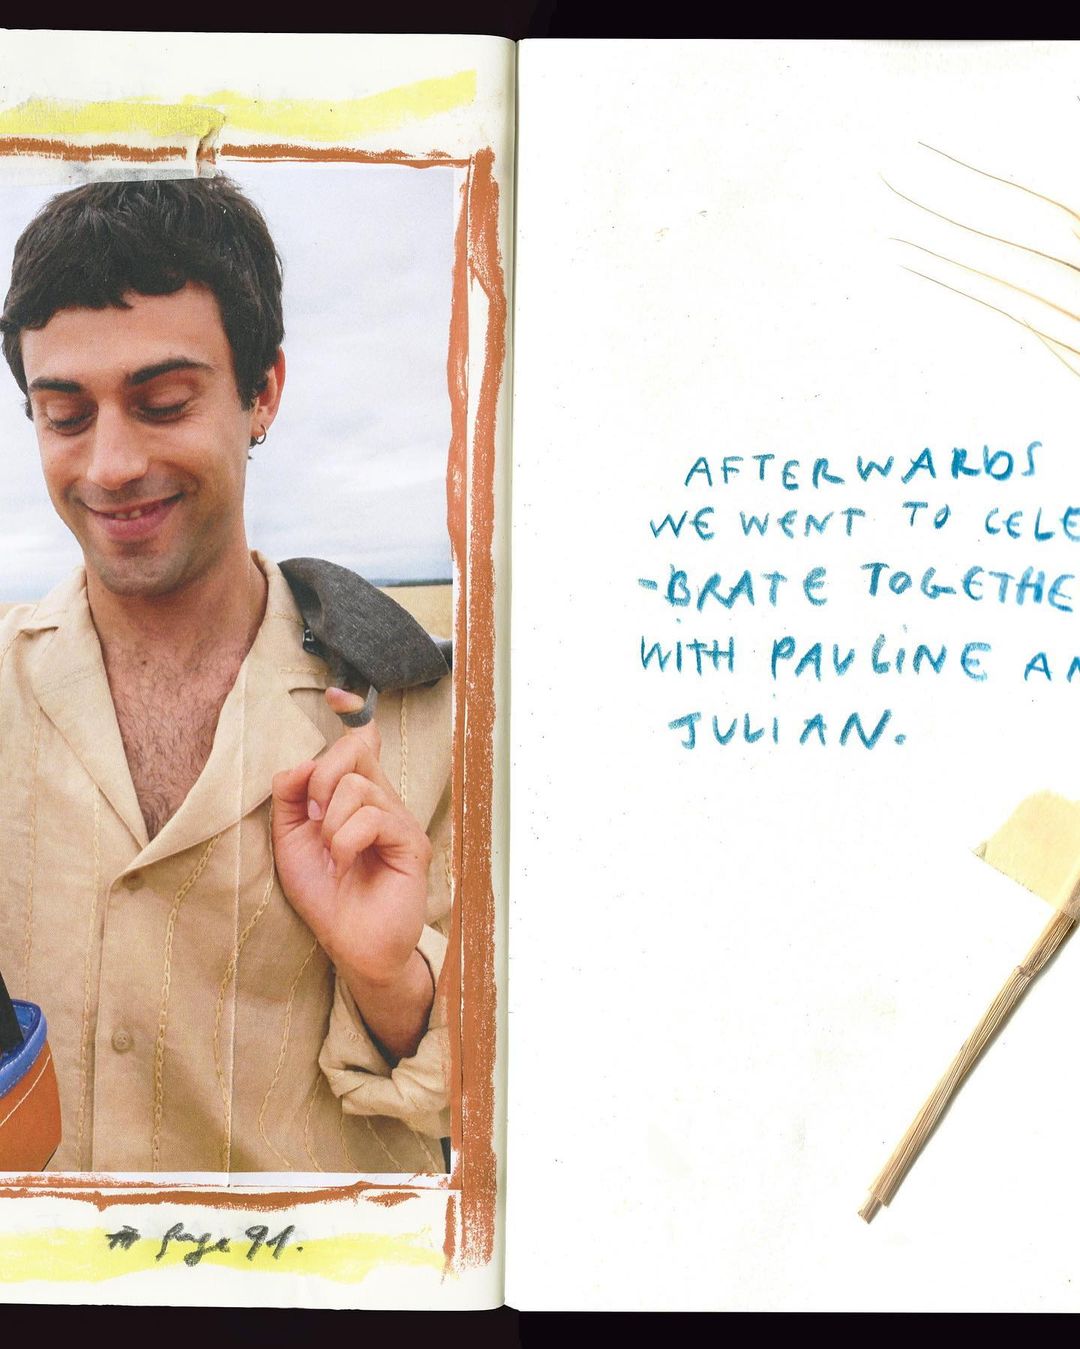 page 91.
AFTERWARDS
WE WENT TO CELE
-BRATE TOGETHE
WITH PAULINE AN
JULIAN.